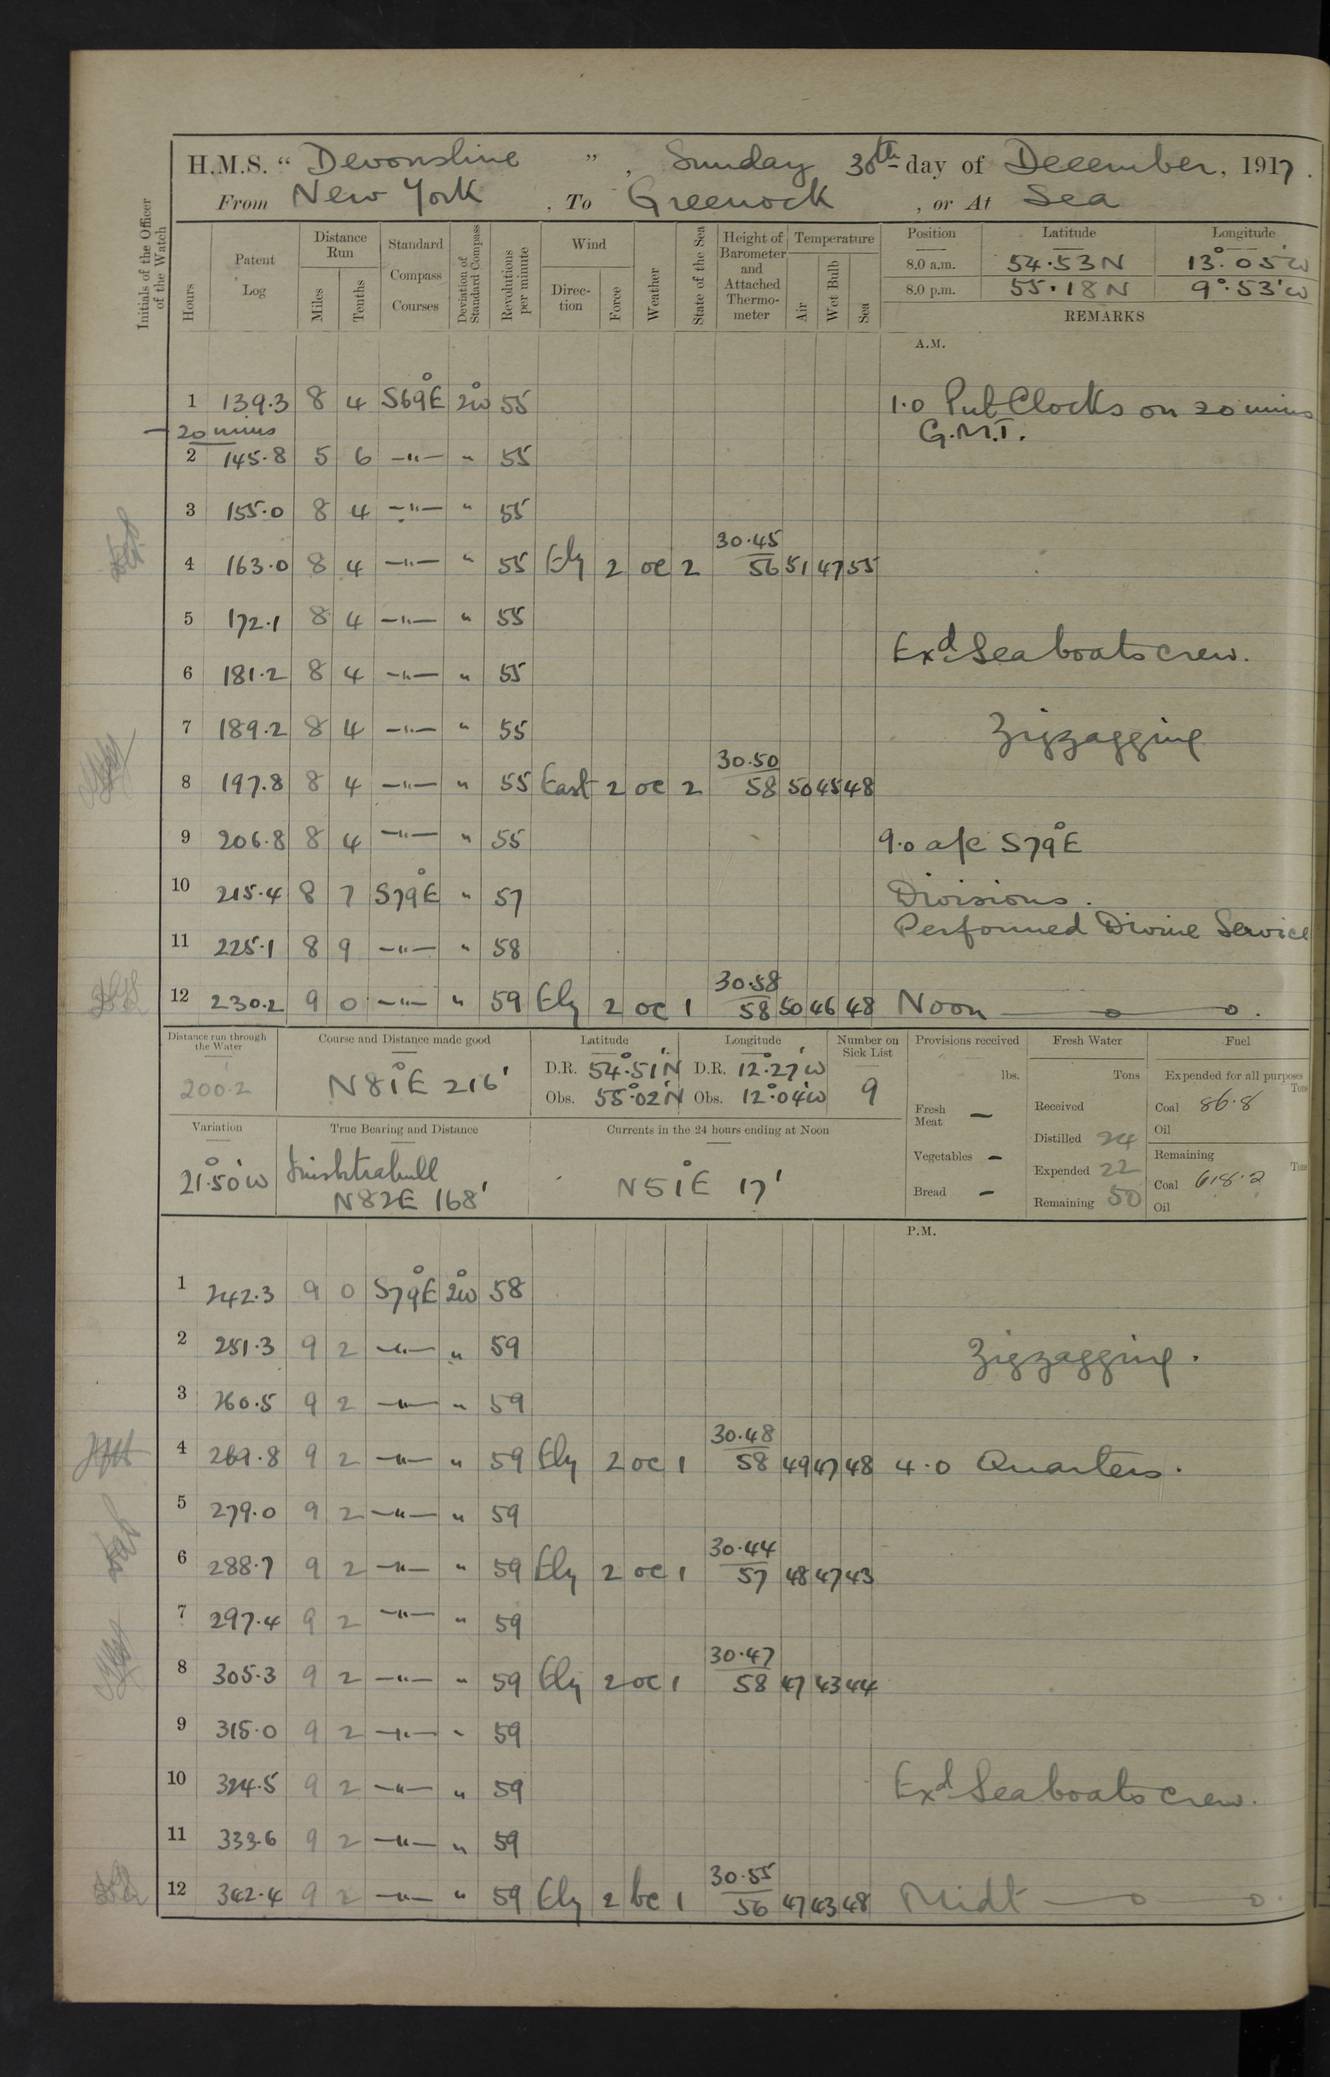 H.M.S. “ Devonshire ” , Sunday 30th day of December, 1917.
From New York , To Greenock , or At Sea
Initials of the Officer of the Watch
Hours
Patent Log
Distance Run
Miles
Tenths
Standard Compass Courses
Deviation of Standard Compass
Revolutions per minute
Wind
Direc- tion
Force
Weather
State of the Sea
Height of Barometer and Attached Thermo- meter
Temperature
Air
Wet Bulb
Sea
Position Latitude Longitude
8.0 a.m. 54.53N 13°.05'W
8.0 p.m. 55.18N 9°.53'W
REMARKS
A.M.
1 139.3 8 4 S69°E 2°W 55 1.0 Put Clocks on 20 mins
– 20 mins G.M.T.
2 145.8 5 6 –"– " 55
3 155.0 8 4 –"– " 55
30.45
4 163.0 8 4 –"– " 55 Ely 2 oc 2 56 51 47 55
5 172.1 8 4 –"– " 55
Exd. Seaboats crew.
6 181.2 8 4 –"– " 55
7 189.2 8 4 –"– " 55 Zigzagging
30.50
8 197.8 8 4 –"– " 55 East 2 oc 2 58 50 45 48
9 206.8 8 4 –"– " 55 9.0 a/c S79°E
10 215.4 8 7 S79°E " 57 Divisions.
Performed Divine Service
11 225.1 8 9 –"– " 58
30.58
12 230.2 9 0 –"– " 59 Ely 2 oc 1 58 50 46 48 Noon
Distance run through the Water
200.2
Course and Distance made good
N81°E 216'
Latitude
D.R. 54°.51'N
Obs. 55°.02'N
Longitude
D.R. 12°.27'W
Obs. 12°.04'W
Number on Sick List
9
Provisions received
lbs.
Fresh Meat –
Vegetables –
Bread –
Fresh Water
Tons
Received
Distilled 24
Expended 22
Remaining 50
Fuel
Expended for all purposes
Tons
Coal 86.8
Oil
Remaining
Tons
Coal 618.2
Oil
Variation
21°.50'W
True Bearing and Distance
Inishtrahull
N82E 168'
Currents in the 24 hours ending at Noon
N51°E 17'
P.M.
1 242.3 9 0 S79°E 2°W 58
2 251.3 9 2 –"– " 59 Zigzagging.
3 260.5 9 2 –"– " 59
30.48
4 269.8 9 2 –"– " 59 Ely 2 oc 1 58 49 47 48 4.0 Quarters.
5 279.0 9 2 –"– " 59
30.44
6 288.7 9 2 –"– " 59 Ely 2 oc 1 57 48 47 43
7 297.4 9 2 –"– " 59
30.47
8 305.3 9 2 –"– " 59 Ely 2 oc 1 58 47 43 44
9 315.0 9 2 –"– " 59
10 324.5 9 2 –"– " 59 Exd. Seaboats crew.
11 333.6 9 2 –"– " 59
30.55
12 342.4 9 2 –"– " 59 Ely 2 bc 1 56 47 43 48 Midt